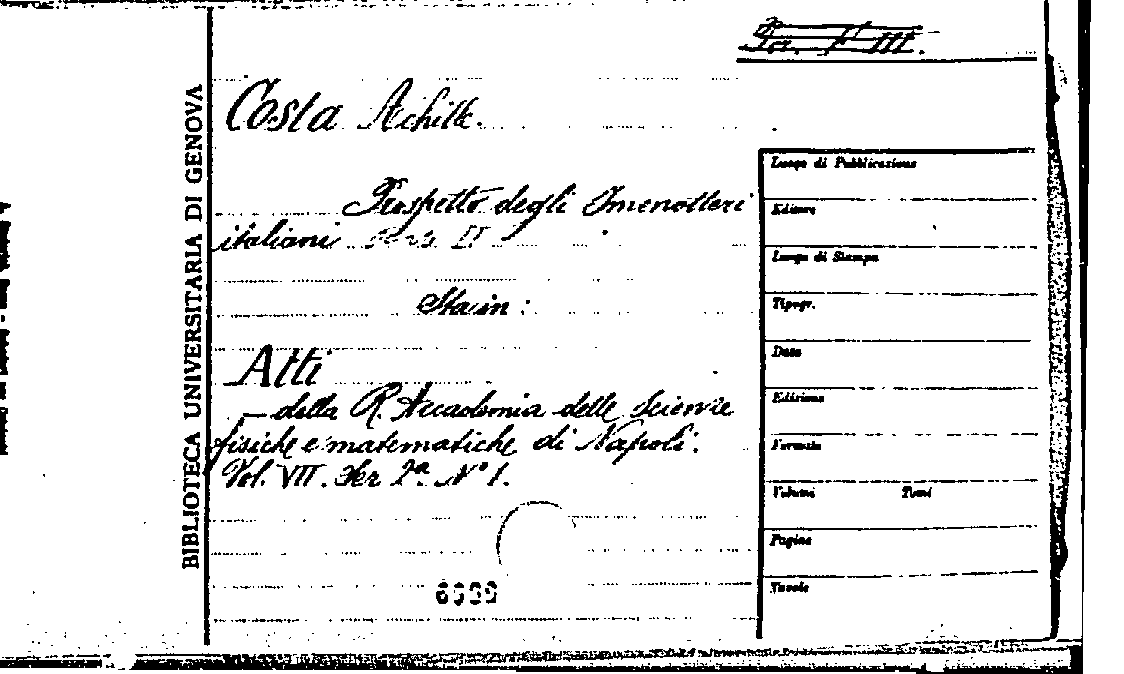 BIBLIOTECA UNIVERSITARIA DI GENOVA
Costa Achille.
Prospetto degli Imenotteri
italiani II
Sta in:
Atti
della R. Accademia delle Scienze
fisiche e matematiche di Napoli.
Vol. VII. Ser 2ª N° 1.
Luogo di Pubblicazione
Editore
Luogo di Stampa
Tipogr.
Data
Edizione
Formato
Volumi Tomi
Pagine
Tavole